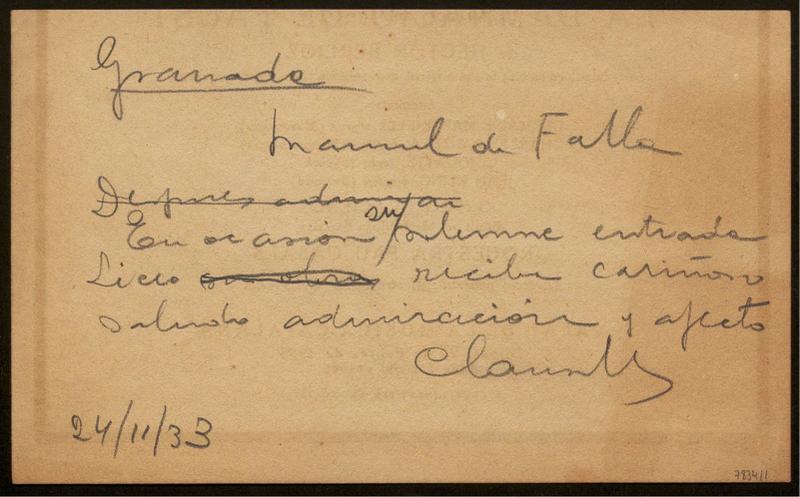 Granada
Manuel de Falla
Despues admirar
En ocasión su solemne entrada
Liceo su obra recibe cariñoso
saludo admiración y afecto
Clausells
24/11/33
7834/1